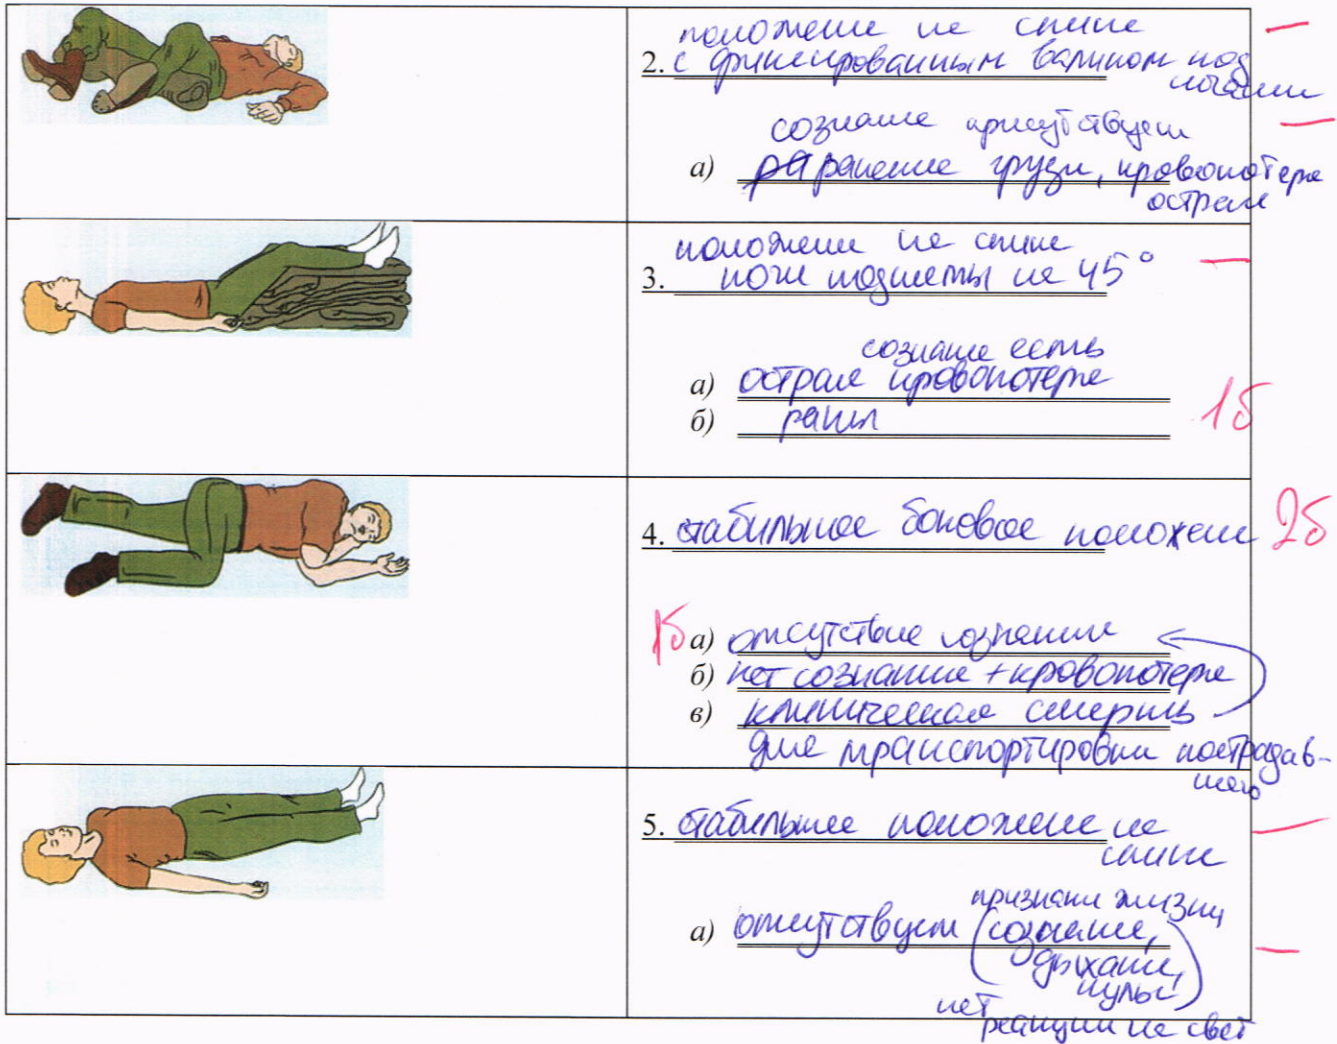 положение на спине —
2. с фиксированным валиком под
ногами
сознание присутствует —
а) ранение груди, кровопотеря
острая
положение на спине
3. ноги подняты на 45° —
сознание есть
а) острая кровопотеря
б) раны 1б
4. стабильное боковое положение 2б
1б а) отсутствие сознания
б) нет сознания + кровопотеря
в) клиническая смерть
для транспортировки пострадав-
шего
5. стабильное положение на —
спине
признаки жизни
а) отсутствуют (сознание, —
дыхание,
пульс)
нет
реакции на свет